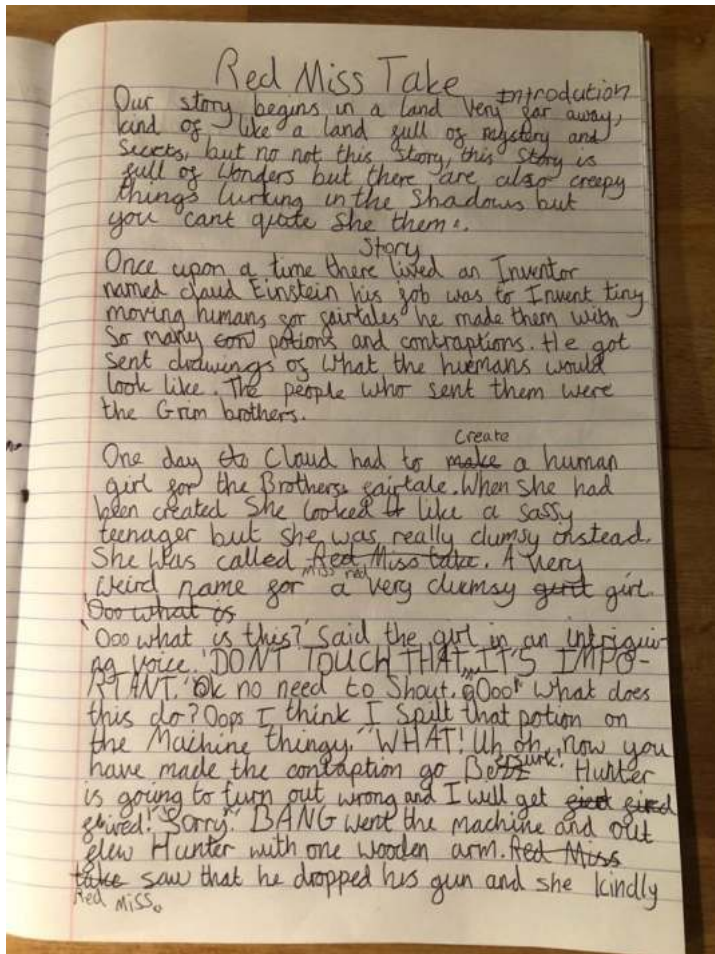 Red Miss Take
Introdution
Our story begins in a land very far away,
kind of like a land full of mystery and
Secrets, but no not this story, this story is
full of wonders but there are also creepy
things lurking in the Shadows but
you cant quote She them.
Story
Once upon a time there lived an Inventor
named cloud Einstein his job was to Invent tiny
moving humans for fairtales he made them with
So many potions and contraptions. He got
Sent drawings of what the humans would
look like. The people who sent them were
the Grim brothers.
One day Cloud had to make Create a human
girl for the Brothers fairtale. When she had
been created She looked like a sassy
teenager but she was really clumsy instead.
She was called Red Miss take. A very
weird name for miss red a very clumsy girl.
Ooo what is
'Ooo what is this?' Said the girl in an intrigui-
ng voice. 'DONT TOUCH THAT, IT'S IMPO-
RTANT.' Ok no need to Shout. Ooo" What does
this do? Oops I think I Spilt that potion on
the Machine thingy." "WHAT! Uh oh, now you
have made the contaption go Hunter
is going to turn out wrong and I will get
fired! "Sorry." BANG went the machine and out
flew Hunter with one wooden arm. Red Miss
take saw that he dropped his gun and she kindly
Red Miss.